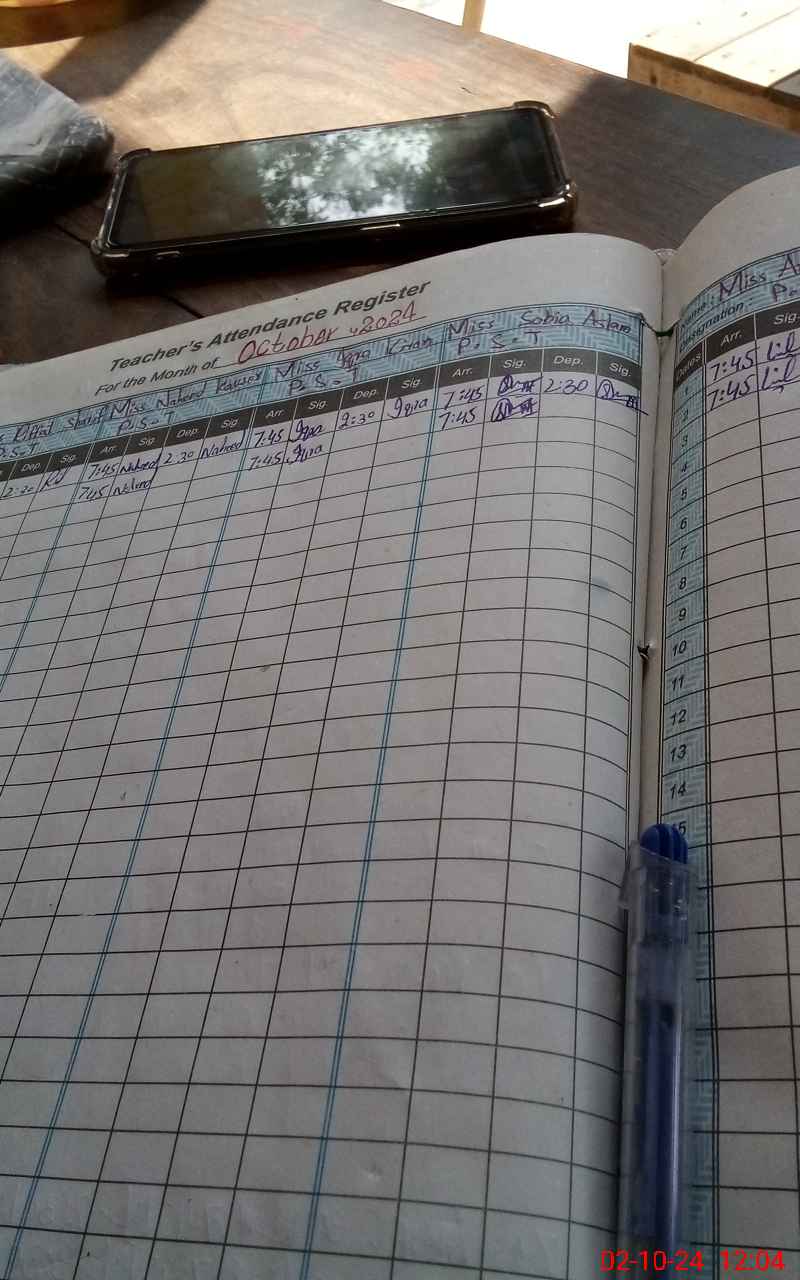 Teacher's Attendance Register
For the Month of October, 2024
Riffat Sharif Miss Naheed Miss Iqra Kiran Miss Sobia Aslam Name: Miss
P.S.T P.S. P.S.T P.S.T Designation:
Dep. Sig. Arr. Sig. Dep. Sig. Arr. Sig. Dep. Sig Arr. Sig. Dep. Sig. Dates Arr. Sig.
2:30 7:45 Naheed 2:30 Naheed 7:45 Iqra 2:30 Iqra 7:45 2:30 1 7:45
7:45 Naheed 7:45 Iqra 7:45 2 7:45
3
4
5
6
7
8
9
10
11
12
13
14
15
02-10-24 12:04